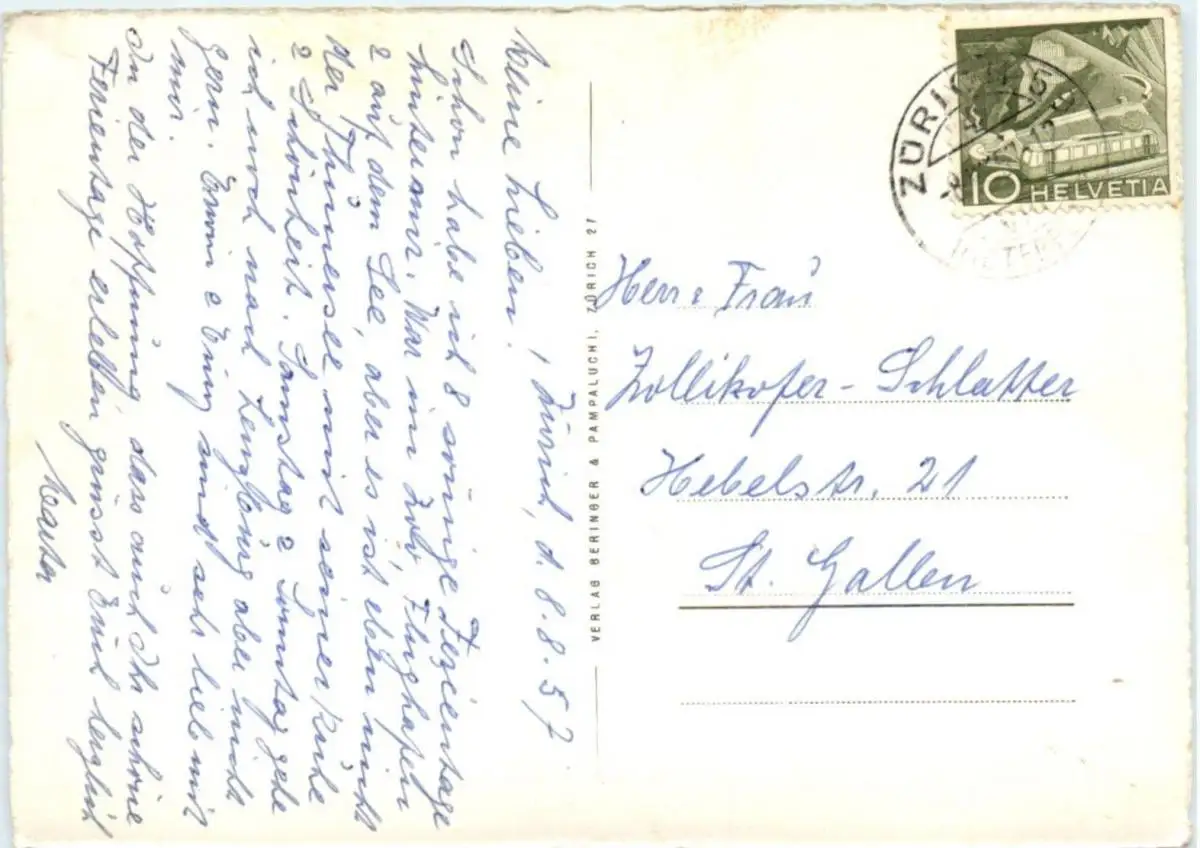 Zürich, d. 8.8.57
Meine Lieben!
Schon habe ich 8 sonnige Ferientage
hinter mir. War im Zoo, Flughafen
& auf dem See, aber es ist eben nicht
der Thunersee mit seiner Ruhe
& Schönheit. Samstag & Sonntag gehe
ich noch nach Lenzburg aber nicht
gern. Erwin & Emmy sind sehr lieb mit
mir.
In der Hoffnung dass auch Ihr schöne
Ferientage erleben grüsst Euch herzlich
VERLAG BERINGER & PAMPALUCHI, ZÜRICH 27
ZÜRICH
10 HELVETIA
Herr & Frau
Zollikofer-Schlatter
Hebelstr. 21
St. Gallen